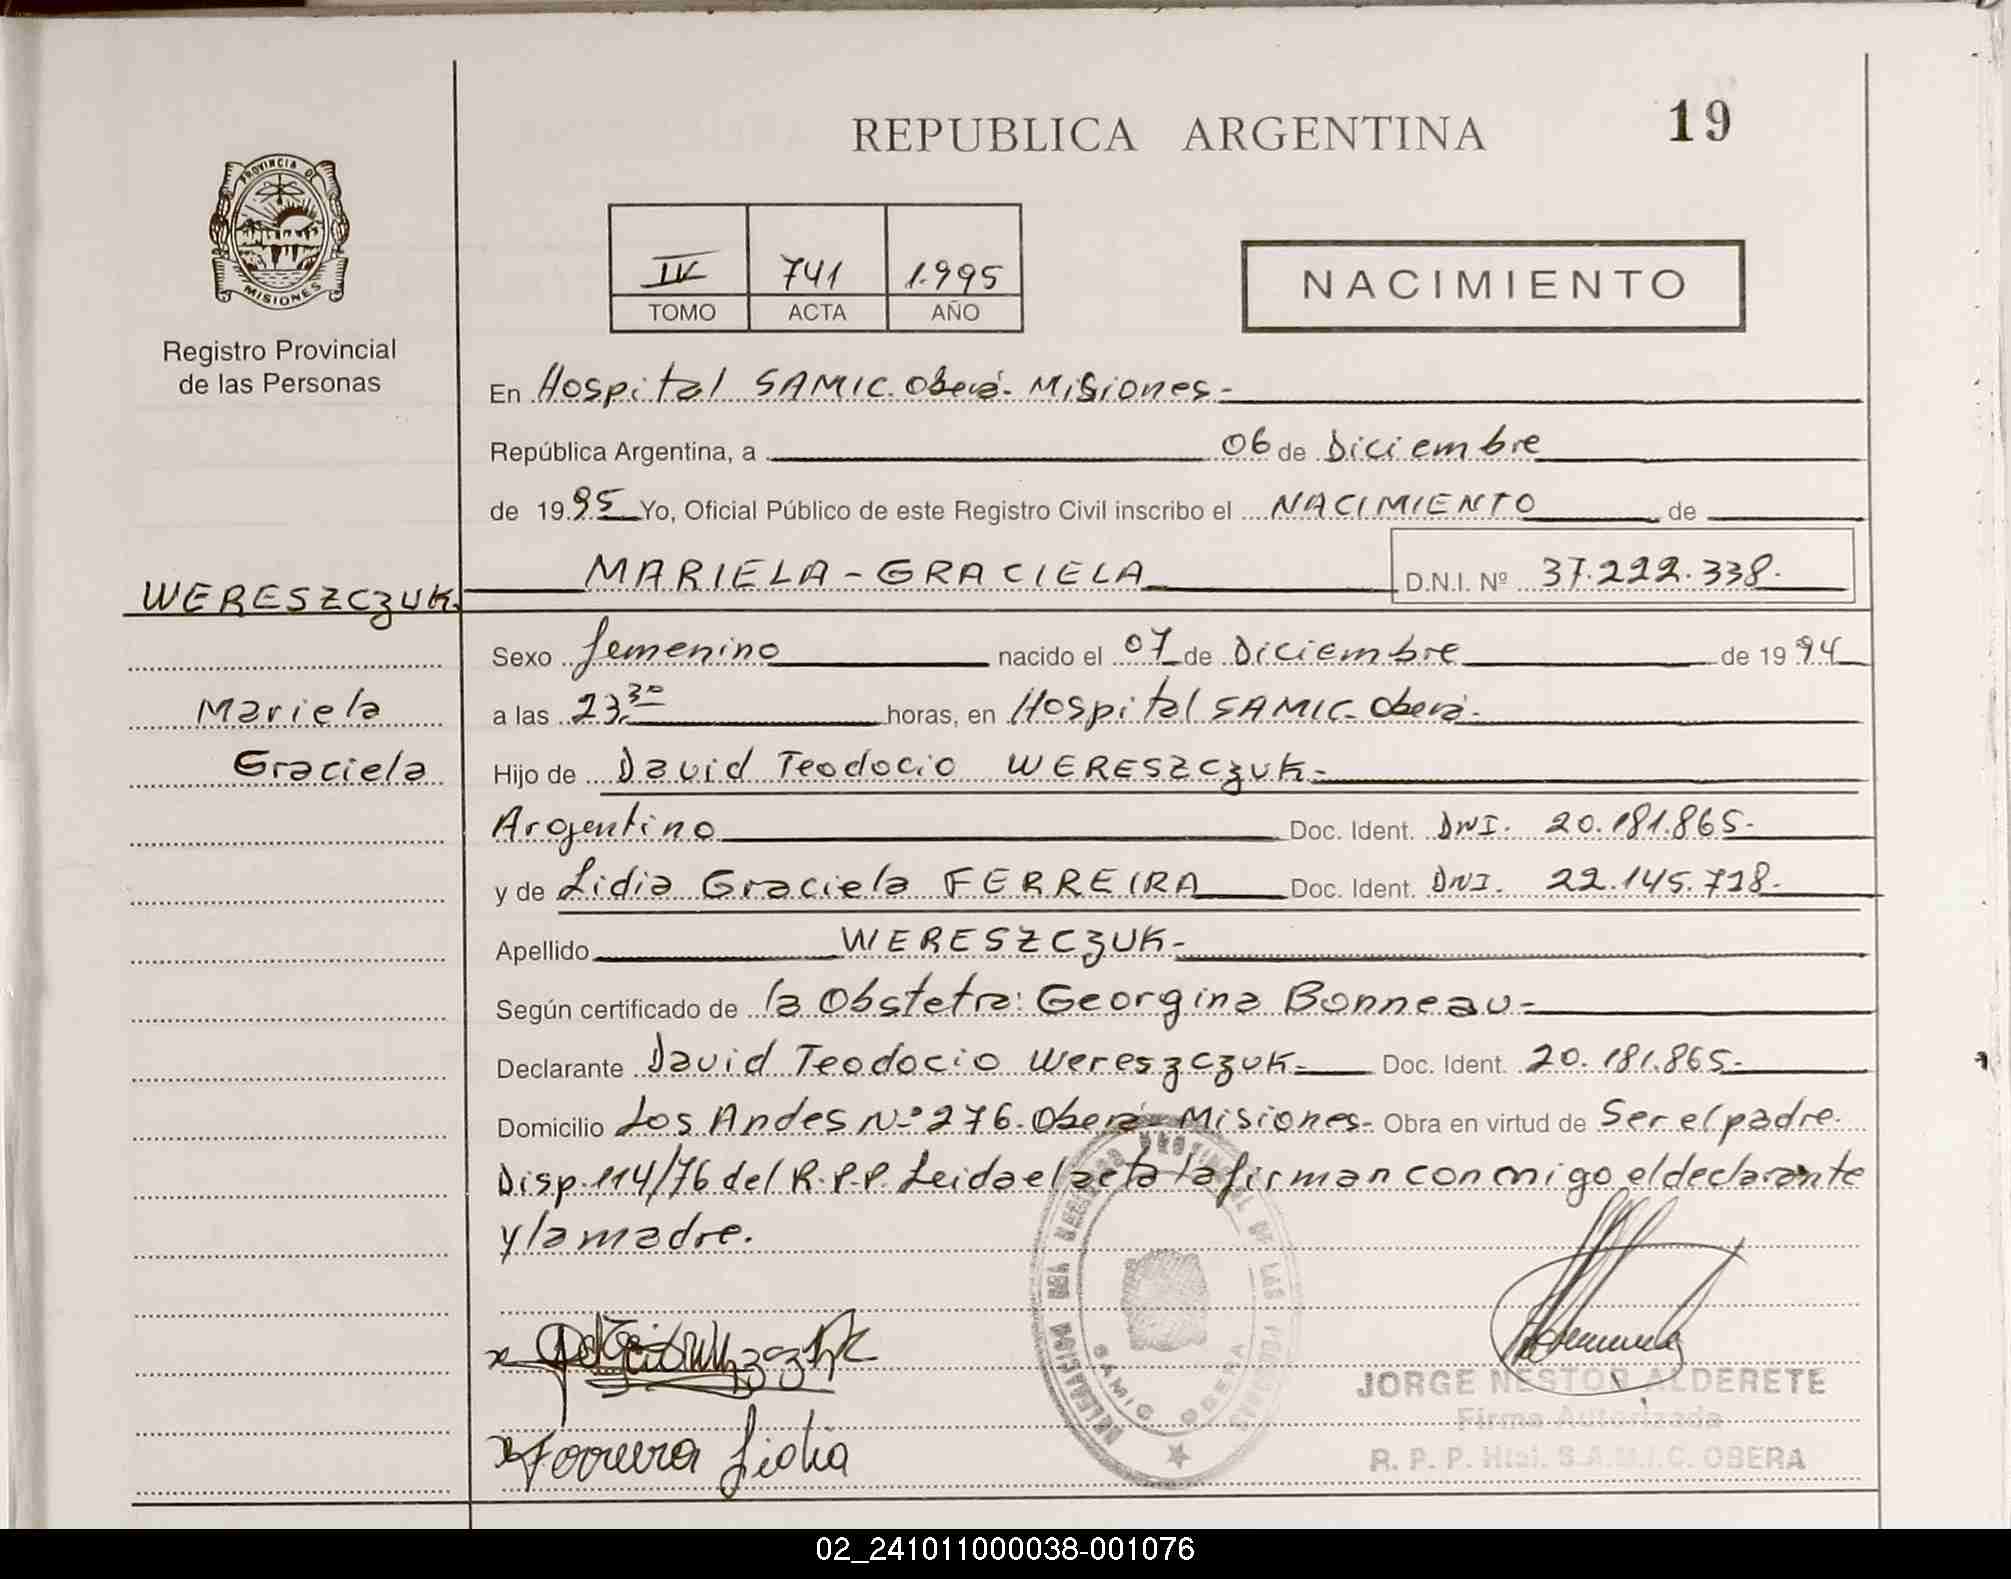 REPUBLICA ARGENTINA
19
PROVINCIA DE
MISIONES
Registro Provincial
de las Personas
IV 741 1.995
TOMO ACTA AÑO
NACIMIENTO
En Hospital SAMIC. Oberá. Misiones-
República Argentina, a 06 de Diciembre
de 19 95 Yo, Oficial Público de este Registro Civil inscribo el NACIMIENTO de
MARIELA - GRACIELA D.N.I. Nº 37.222.338.
WERESZCZUK.
Sexo femenino nacido el 07 de Diciembre de 19 94
Mariela
a las 23.30 horas, en Hospital SAMIC. Oberá.
Graciela
Hijo de David Teodocio WERESZCZUK-
Argentino Doc. Ident. DNI. 20.181.865.
y de Lidia Graciela FERREIRA Doc. Ident. DNI. 22.145.728.
Apellido WERESZCZUK-
Según certificado de la Obstetra: Georgina Bonneau-
Declarante David Teodocio Wereszczuk- Doc. Ident. 20.181.865.
Domicilio Los Andes Nº 276. Oberá Misiones- Obra en virtud de Ser el padre.
Disp. 114/76 del R.P.P. Leida el acta la firman conmigo el declarante
y la madre.
DELEGACION DEL REGISTRO PROVINCIAL DE LAS PERSONAS
SAMIC OBERA
JORGE NESTOR ALDERETE
Firma Autorizada
R. P. P. Htal. S.A.M.I.C. OBERA
x Ferreira Lidia
02_241011000038-001076